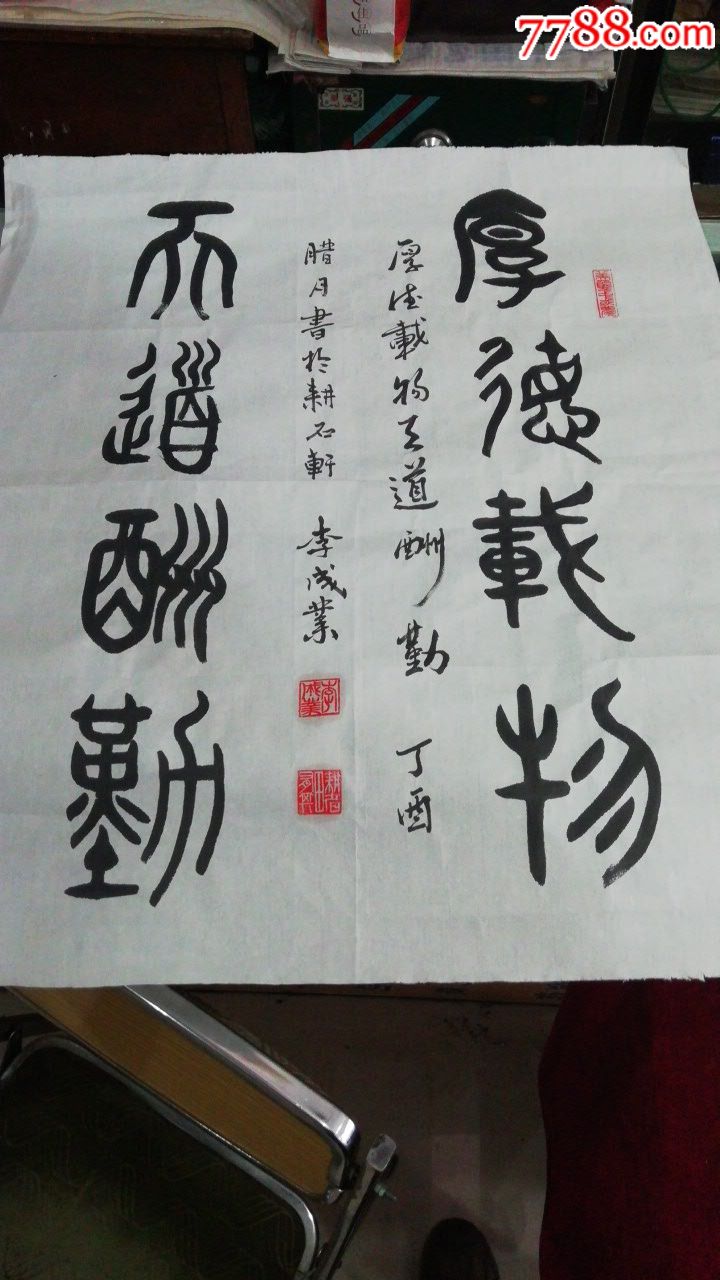 7788.com
厚德載物
厚德載物天道酬勤 丁酉
腊月書於耕石軒 李成業
天道酬勤
李成業